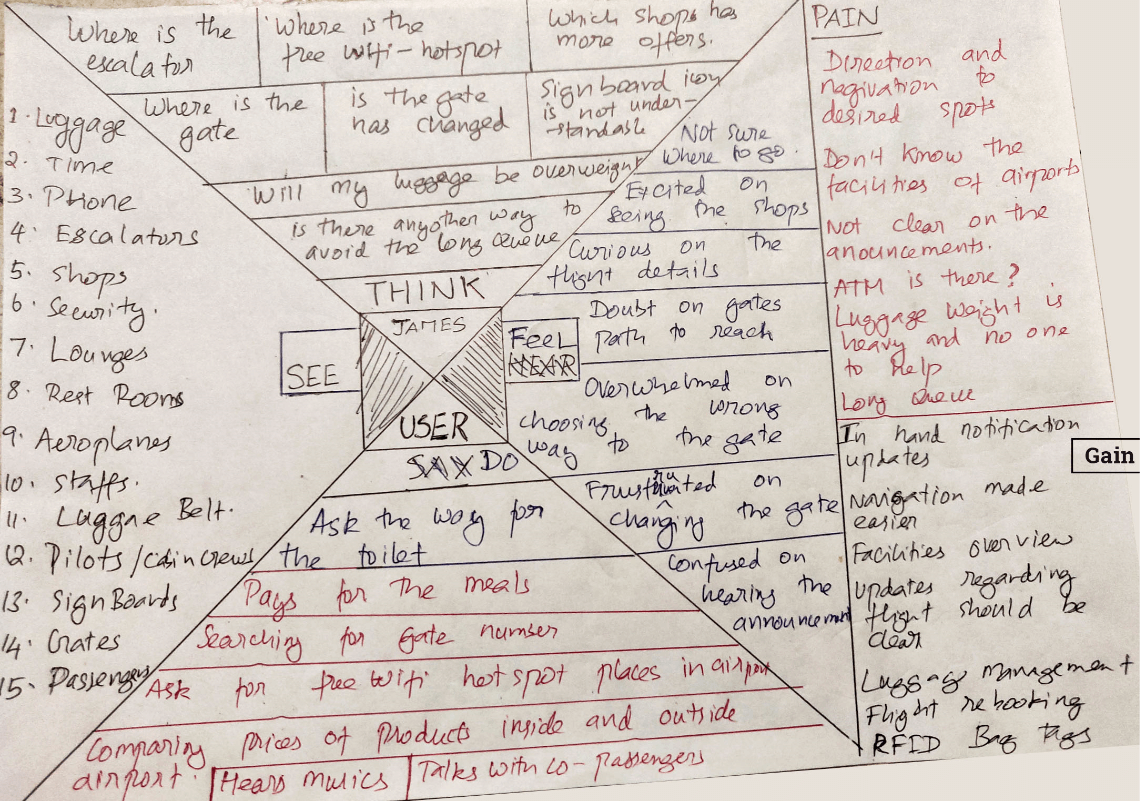 Where is the
escalator
Where is the
free Wifi-hotspot
Which shops has
more offers.
Where is the
gate
is the gate
has changed
Sign board icon
is not under-
-standable
Will my luggage be overweight
is there anyother way to
avoid the long Queue
THINK
JAMES
USER
SEE
1. Luggage
2. Time
3. Phone
4. Escalators
5. Shops
6. Security.
7. Lounges
8. Rest Rooms
9. Aeroplanes
10. Staffs.
11. Luggae Belt.
12. Pilots/cabin crews
13. Sign Boards
14. Gates
15. Passengers
FEEL
HEAR
Not sure
where to go.
Excited on
seeing the shops
Curious on the
flight details
Doubt on gates
path to reach
Overwhelmed on
choosing the wrong
way to the gate
Frustrated on
changing the gate
Confused on
hearing the
announcement
SAY DO
Ask the way for
the toilet
Pays for the meals
Searching for Gate number
Ask for free Wifi hotspot places in airport
Comparing prices of products inside and outside
airport.
Hears musics
Talks with co-passengers
PAIN
Direction and
nagivation to
desired spots
Don't know the
facilities of airports
Not clear on the
anouncements.
ATM is there?
Luggage Weight is
heavy and no one
to help
Long Queue
Gain
In hand notification
updates
Navigation made
easier
Facilities overview
updates regarding
flight should be
clear
Luggage management
Flight rebooking
RFID Bag Tags